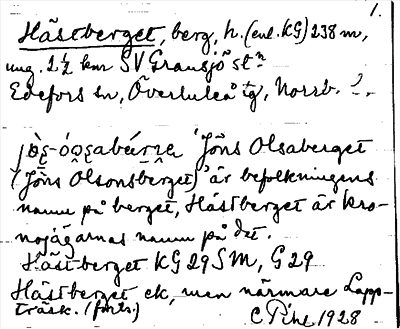 1.
Hästberget, berg, h. (enl. KG) 238 m,
ung. 2 ½ km SV Gransjö stn
Edefors sn, Överluleå tg, Norrb. l.
'Jöns Olsaberget
(Jöns Olsonsberget)' är befolkningens
namn på berget, Hästberget är kro-
nojägarnas namn på det.
Hästberget KG 29 SM, G 29
Hästberget ek, men närmare Lapp-
träsk. (forts.)
1928